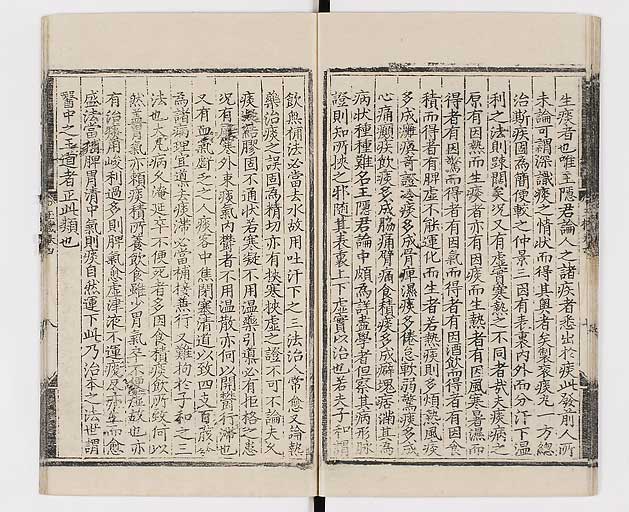 生痰者也唯王隱君論人之諸疾者悉出於痰此發前人所
未論可謂深識痰之情狀而得其奧者矣製滾痰丸一方總
治斯疾固為簡便較之仲景三因有表裏內外而分汗下溫
利之法則踈闊矣況又有虛實寒熱之不同者哉夫痰病之
原有因熱而生痰者亦有因痰而生熱者有因風寒暑濕而
得者有因驚而得者有因氣而得者有因酒飲而得者有因食
積而得者有脾虛不能運化而生者若熱痰則多煩熱風痰
多成癱瘓奇證冷痰多成骨痺濕痰多倦怠軟弱驚痰多成
心痛癲疾飲痰多成脇痛臂痛食積痰多成癖塊痞滿其為
病狀種種難名王隱君論中頗為詳盡學者但察其病形脉
證則知所挾之邪隨其表裏上下虛實以治也若夫子和謂
飲無補法必當去水故用吐汗下之三法治人常愈又論熱
藥治痰之誤固為精切亦有挾寒挾虛之證不可不論夫久
痰凝結膠固不通狀若寒凝不用溫藥引導必有拒格之患
況有風寒外束痰氣內鬱者不用溫散亦何以開鬱行滯也
又有血氣虧乏之人痰客中焦閉塞清道以致四支百骸
為諸病理宜導去痰滯必當補接兼行又難拘於子和之三
法也大凡病久淹延卒不便死者多因食積痰飲所致何以
然盖胃氣亦賴痰積所養飲食雖少胃氣卒不便虛故也亦
有治痰用峻利過多則脾氣愈虛津液不運痰反生而愈
盛法當補脾胃清中氣則痰自然運下此乃治本之法世謂
醫中之王道者正此類也